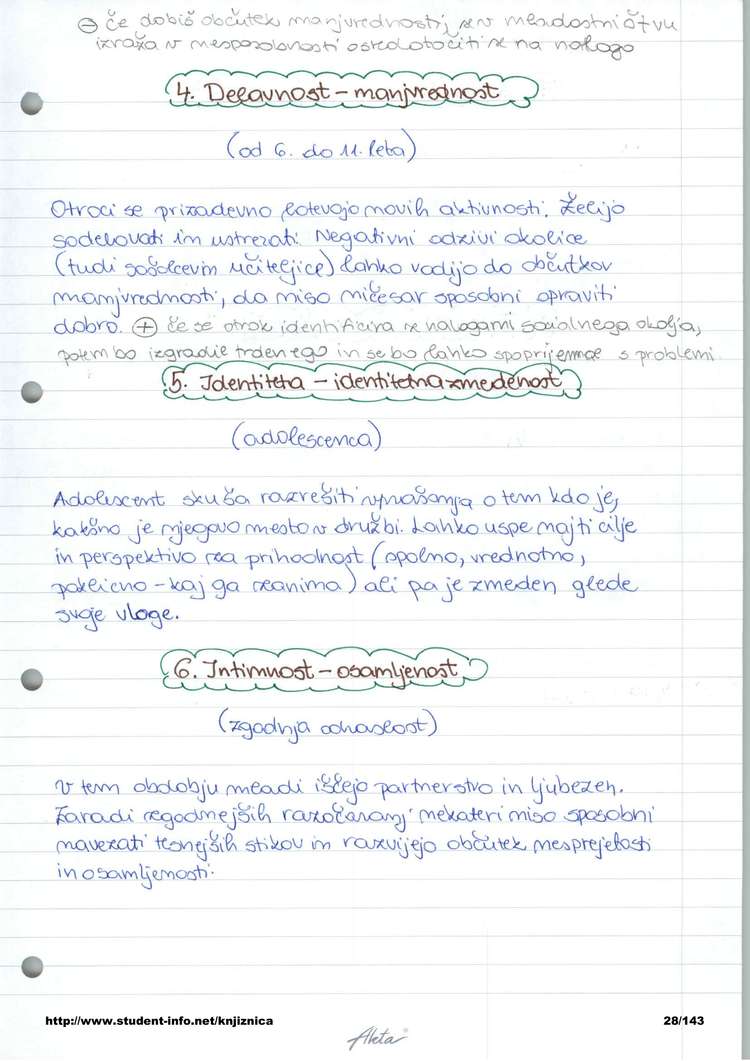 ⊖ če dobiš občutek manjvrednosti, se v mladostništvu
izraža v nesposobnosti osredotočiti se na nalogo
4. Delavnost – manjvrednost
(od 6. do 11. leta)
Otroci se prizadevno lotevajo novih aktivnosti. Želijo
sodelovati in ustrezati. Negativni odzivi okolice
(tudi sošolcev in učiteljice) lahko vodijo do občutkov
manjvrednosti, da niso ničesar sposobni opraviti
dobro. ⊕ če se otrok identificira z nalogami socialnega okolja,
potem bo izgradil trden ego in se bo lahko spoprijemal s problemi
5. Identiteta – identitetna zmedenost
(adolescenca)
Adolescent skuša razrešiti vprašanja o tem kdo je,
kakšno je njegovo mesto v družbi. Lahko uspe najti cilje
in perspektivo za prihodnost (spolno, vrednotno,
poklicno – kaj ga zanima) ali pa je zmeden glede
svoje vloge.
6. Intimnost – osamljenost
(zgodnja odraslost)
V tem obdobju mladi iščejo partnerstvo in ljubezen.
Zaradi zgodnejših razočaranj nekateri niso sposobni
navezati tesnejših stikov in razvijejo občutek nesprejetosti
in osamljenosti.
http://www.student-info.net/knjiznica 28/143
Aleta